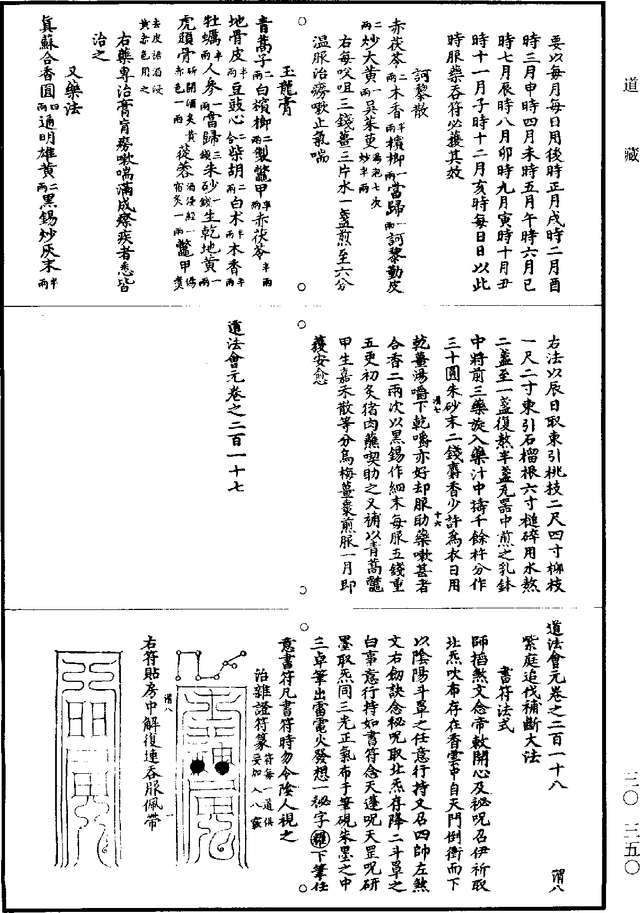 道藏
三〇 三五〇
要以每月每日用後時正月戌時二月酉
時三月申時四月未時五月午時六月巳
時七月辰時八月卯時九月寅時十月丑
時十一月子時十二月亥時每日日以此
時服藥吞符必獲其效
訶黎散
赤茯苓二兩木香半兩檳榔一兩當歸一兩訶黎勒皮
二兩炒大黃一兩吳茱萸湯泡七次炒半兩
右每㕮咀三錢薑三片水一盞煎至六分
溫服治癆嗽止氣喘
玉龍膏
青蒿子二兩白檳榔二兩製鼈甲半兩赤茯苓半兩
地骨皮半兩豆豉心二合柴胡二兩白朮半兩木香半兩
牡蠣一兩人參一兩當歸三錢朱砂一錢生乾地黃一兩
虎頭骨斫開酒炙黃赤色一兩蓯蓉酒浸經一宿炙一兩鼈甲
去皮裙酒浸
黃赤色用之
右藥專治膏肓癆嗽喘滿成瘵疾者悉皆
治之
又藥法
真蘇合香圓四兩通明雄黃二兩黑錫炒灰末半兩
右法以辰日取東引桃枝二尺四寸柳枝
一尺二寸東引石榴根六寸槌碎用水熬
二盞至一盞復熬半盞瓦器中煎之乳鉢
中將前三藥旋入藥汁中擣千餘杵分作
三十圓朱砂末二錢麝香少許為衣日用
渭七 十六
乾薑湯嚼下乾嚼亦好却服助藥嗽甚者
合香二兩次以黑錫作細末每服五錢重
五更初炙猪肉蘸喫助之又補以青蒿鼈
甲生嘉禾散等分烏梅薑棗煎服一月即
獲安愈
道法會元卷之二百一十七
道法會元卷之二百一十八 渭八
紫庭追伐補斷大法
書符法式
師搯煞文念帝敕開心及祕呪召伊祈取
北炁吹布存在香雲中自天門倒衝而下
以陰陽斗罩之任意行持又召四師左煞
文右劒訣念祕呪取北炁存降二斗罩之
白事意行持如書符念天蓬呪天罡呪研
墨取炁同三光正氣布于筆硯朱墨之中
三卓筆出雷電火發想一祕字下筆任
意書符凡書符時勿令陰人視之
治雜證符篆符每一道俱要加入八竅
渭八
右符貼房中解復連吞服佩帶